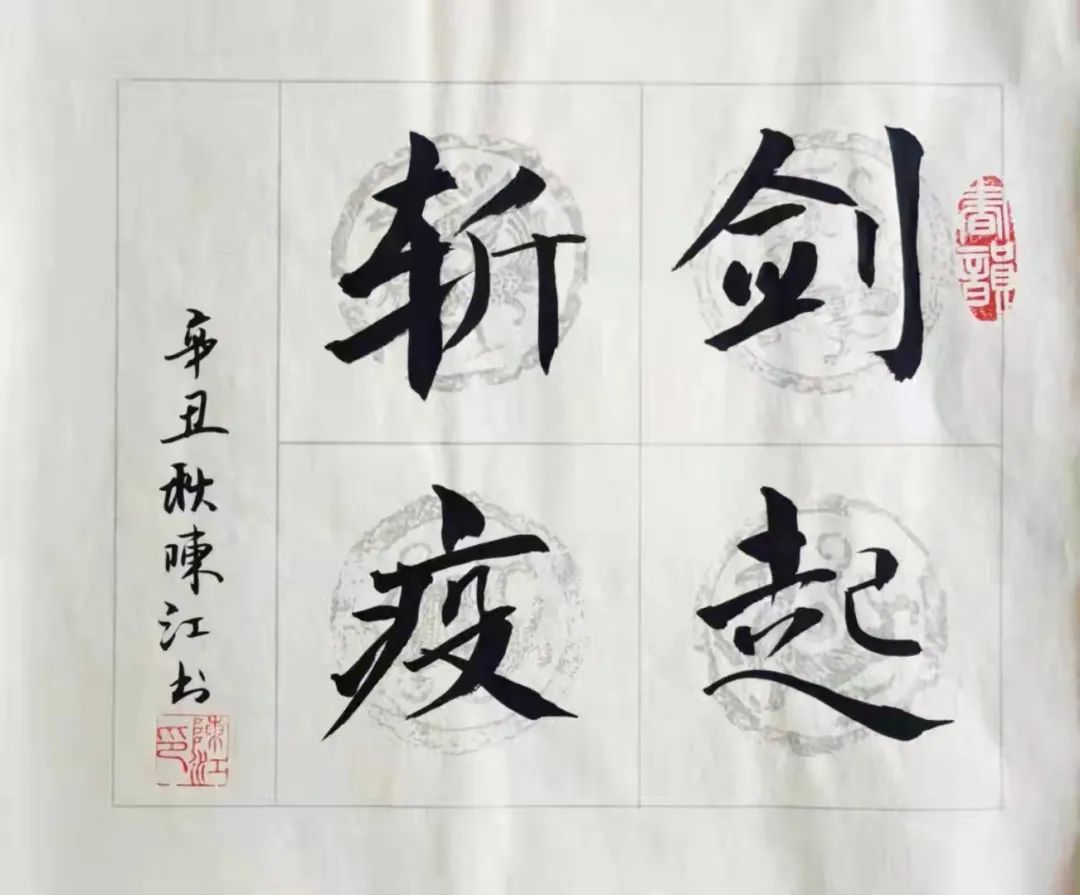 書韻
剑起
斩疫
辛丑秋陳江书
陳江印